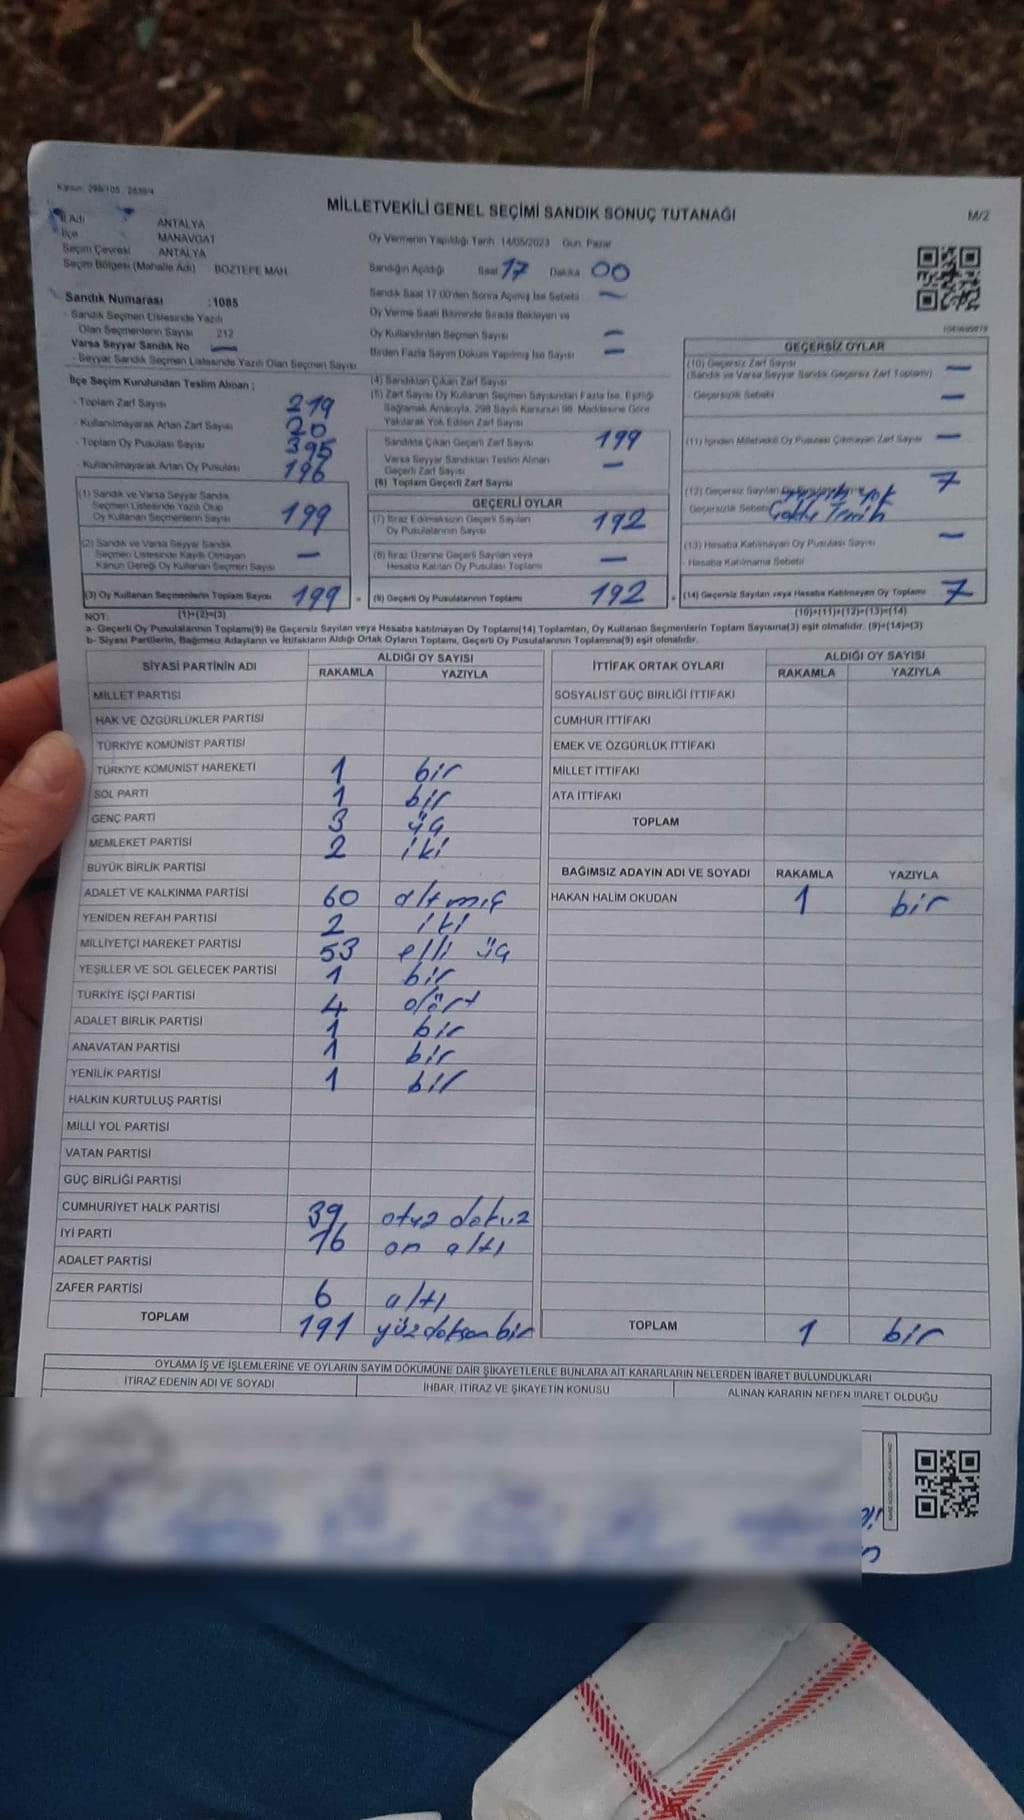 Kanun: 298/105, 2839/4
MİLLETVEKİLİ GENEL SEÇİMİ SANDIK SONUÇ TUTANAĞI
M/2
İl Adı ANTALYA
İlçe MANAVGAT
Seçim Çevresi ANTALYA
Seçim Bölgesi (Mahalle Adı) BOZTEPE MAH.
Sandık Numarası :1085
- Sandık Seçmen Listesinde Yazılı
Olan Seçmenlerin Sayısı 212
Varsa Seyyar Sandık No —
- Seyyar Sandık Seçmen Listesinde Yazılı Olan Seçmen Sayısı
Oy Vermenin Yapıldığı Tarih 14/05/2023 Gün Pazar
Sandığın Açıldığı Saat 17 Dakika 00
Sandık Saat 17.00'den Sonra Açılmış İse Sebebi —
Oy Verme Saati Bitiminde Sırada Bekleyen ve
Oy Kullandırılan Seçmen Sayısı —
Birden Fazla Sayım Döküm Yapılmış İse Sayısı —
İlçe Seçim Kurulundan Teslim Alınan ;
- Toplam Zarf Sayısı 219
- Kullanılmayarak Artan Zarf Sayısı 20
- Toplam Oy Pusulası Sayısı 395
- Kullanılmayarak Artan Oy Pusulası 196
(1) Sandık ve Varsa Seyyar Sandık
Seçmen Listesinde Yazılı Olup
Oy Kullanan Seçmenlerin Sayısı 199
(2) Sandık ve Varsa Seyyar Sandık
Seçmen Listesinde Kayıtlı Olmayan
Kanun Gereği Oy Kullanan Seçmen Sayısı —
(3) Oy Kullanan Seçmenlerin Toplam Sayısı 199
(1)+(2)=(3)
(4) Sandıktan Çıkan Zarf Sayısı
(5) Zarf Sayısı Oy Kullanan Seçmen Sayısından Fazla İse, Eşitliği
Sağlamak Amacıyla, 298 Sayılı Kanunun 98. Maddesine Göre
Yakılarak Yok Edilen Zarf Sayısı
Sandıkta Çıkan Geçerli Zarf Sayısı 199
Varsa Seyyar Sandıktan Teslim Alınan
Geçerli Zarf Sayısı —
(6) Toplam Geçerli Zarf Sayısı
GEÇERLİ OYLAR
(7) İtiraz Edilmeksizin Geçerli Sayılan
Oy Pusulalarının Sayısı 192
(8) İtiraz Üzerine Geçerli Sayılan veya
Hesaba Katılan Oy Pusulası Toplamı —
(9) Geçerli Oy Pusulalarının Toplamı 192
GEÇERSİZ OYLAR
(10) Geçersiz Zarf Sayısı
(Sandık ve Varsa Seyyar Sandık Geçersiz Zarf Toplamı) —
- Geçersizlik Sebebi —
(11) İçinden Milletvekili Oy Pusulası Çıkmayan Zarf Sayısı —
(12) Geçersiz Sayılan Oy Pusulası Sayısı 7
Geçersizlik Sebebi
(13) Hesaba Katılmayan Oy Pusulası Sayısı —
- Hesaba Katılmama Sebebi
(14) Geçersiz Sayılan veya Hesaba Katılmayan Oy Toplamı 7
(10)+(11)+(12)+(13)=(14)
NOT:
a- Geçerli Oy Pusulalarının Toplamı(9) ile Geçersiz Sayılan veya Hesaba katılmayan Oy Toplamı(14) Toplamları, Oy Kullanan Seçmenlerin Toplam Sayısına(3) eşit olmalıdır. (9)+(14)=(3)
b- Siyasi Partilerin, Bağımsız Adayların ve İttifakların Aldığı Ortak Oyların Toplamı, Geçerli Oy Pusulalarının Toplamına(9) eşit olmalıdır.
SİYASİ PARTİNİN ADI
ALDIĞI OY SAYISI
RAKAMLA YAZIYLA
MİLLET PARTİSİ
HAK VE ÖZGÜRLÜKLER PARTİSİ
TÜRKİYE KOMÜNİST PARTİSİ
TÜRKİYE KOMÜNİST HAREKETİ 1 bir
SOL PARTİ 1 bir
GENÇ PARTİ 3 üç
MEMLEKET PARTİSİ 2 iki
BÜYÜK BİRLİK PARTİSİ
ADALET VE KALKINMA PARTİSİ 60 altmış
YENİDEN REFAH PARTİSİ 2 iki
MİLLİYETÇİ HAREKET PARTİSİ 53 elli üç
YEŞİLLER VE SOL GELECEK PARTİSİ 1 bir
TÜRKİYE İŞÇİ PARTİSİ 4 dört
ADALET BİRLİK PARTİSİ 1 bir
ANAVATAN PARTİSİ 1 bir
YENİLİK PARTİSİ 1 bir
HALKIN KURTULUŞ PARTİSİ
MİLLİ YOL PARTİSİ
VATAN PARTİSİ
GÜÇ BİRLİĞİ PARTİSİ
CUMHURİYET HALK PARTİSİ 39 otuz dokuz
İYİ PARTİ 16 on altı
ADALET PARTİSİ
ZAFER PARTİSİ 6 altı
TOPLAM 191 yüzdoksan bir
İTTİFAK ORTAK OYLARI
ALDIĞI OY SAYISI
RAKAMLA YAZIYLA
SOSYALİST GÜÇ BİRLİĞİ İTTİFAKI
CUMHUR İTTİFAKI
EMEK VE ÖZGÜRLÜK İTTİFAKI
MİLLET İTTİFAKI
ATA İTTİFAKI
TOPLAM
BAĞIMSIZ ADAYIN ADI VE SOYADI RAKAMLA YAZIYLA
HAKAN HALİM OKUDAN 1 bir
TOPLAM 1 bir
OYLAMA İŞ VE İŞLEMLERİNE VE OYLARIN SAYIM DÖKÜMÜNE DAİR ŞİKAYETLERLE BUNLARA AİT KARARLARIN NELERDEN İBARET BULUNDUKLARI
İTİRAZ EDENİN ADI VE SOYADI
İHBAR, İTİRAZ VE ŞİKAYETİN KONUSU
ALINAN KARARIN NEDEN İBARET OLDUĞU